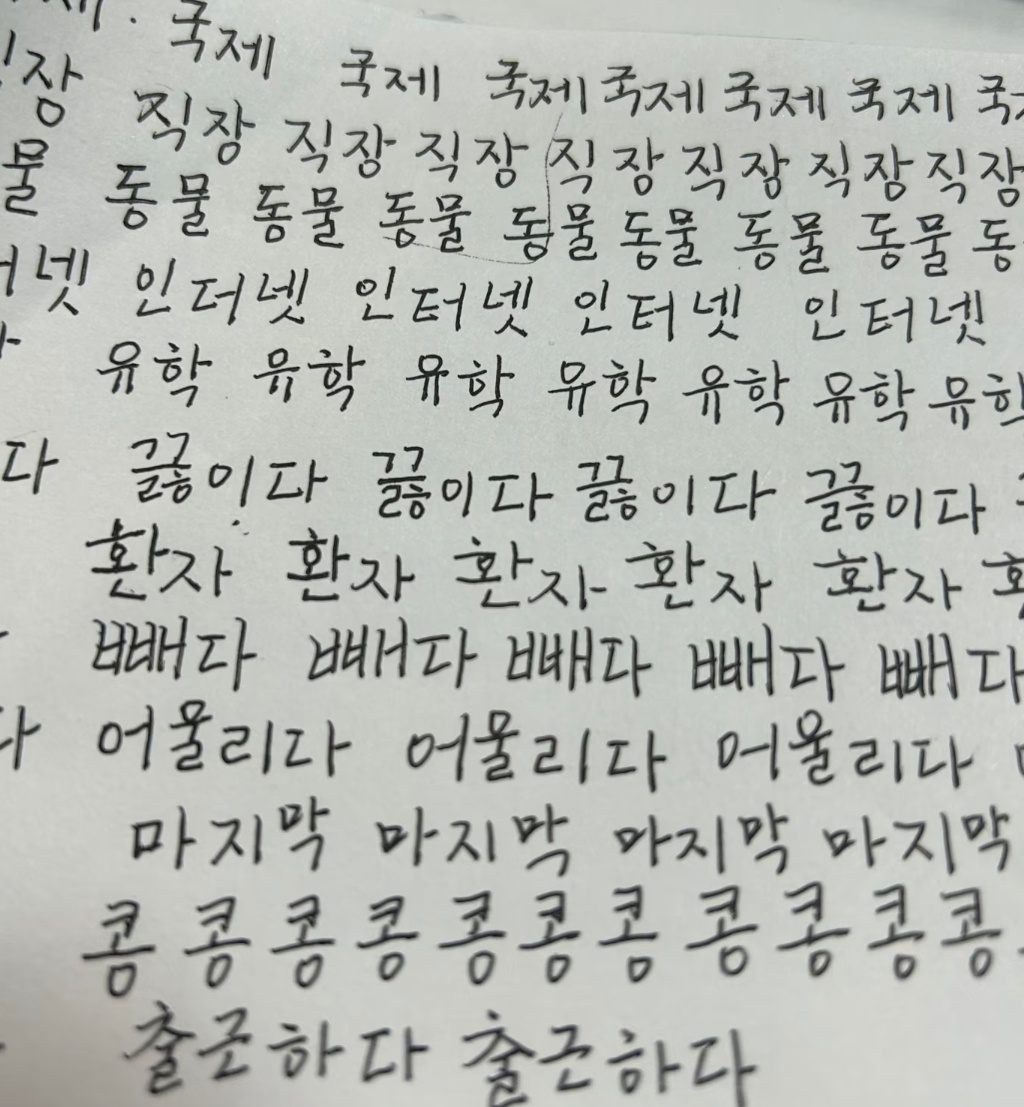 국제 국제 국제 국제 국제 국제
직장 직장 직장 직장 직장 직장 직장
물 동물 동물 동물 동물 동물 동물 동물 동
넷 인터넷 인터넷 인터넷 인터넷
유학 유학 유학 유학 유학 유학 유학
다 끓이다 끓이다 끓이다 끓이다
환자 환자 환자 환자 환자
빼다 빼다 빼다 빼다 빼다
다 어울리다 어울리다 어울리다
마지막 마지막 마지막 마지막
콩 콩 콩 콩 콩 콩 콩 콩 콩 콩 콩
출근하다 출근하다